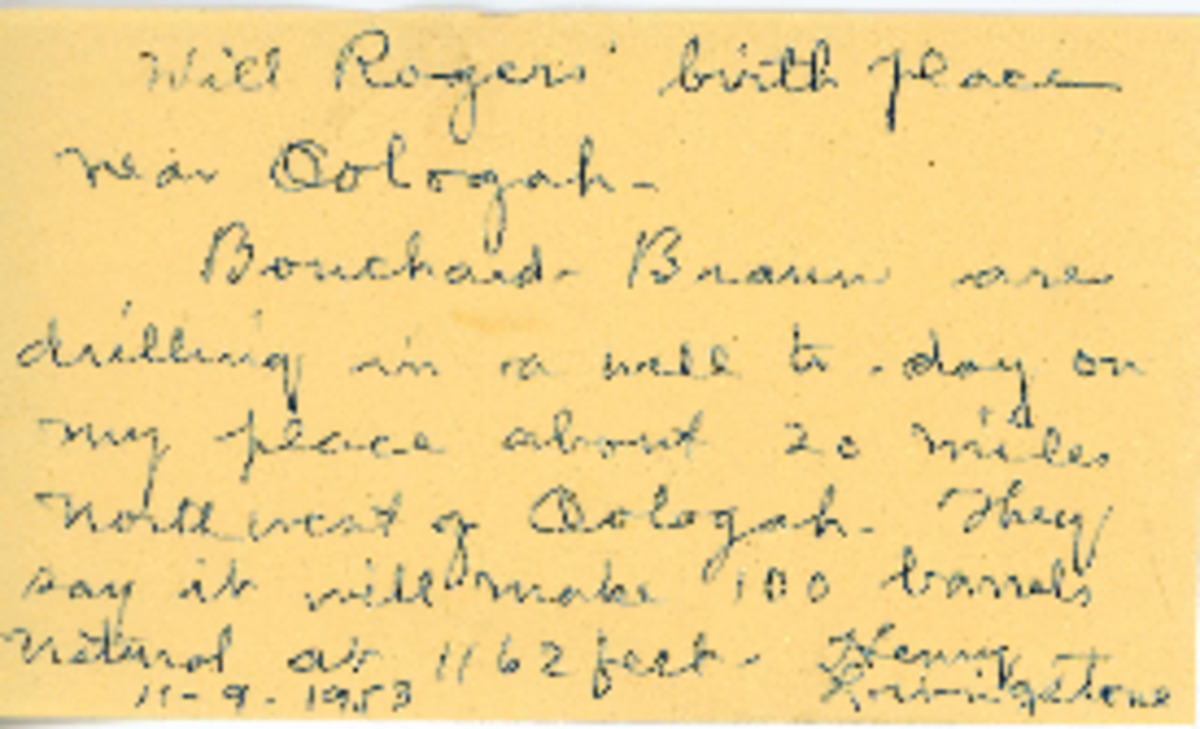 Will Rogers' birth place
near Oologah -
Bouchard - Braun are
drilling in a well to-day on
my place about 20 miles
Northwest of Oologah - They
say it will make 100 barrels
natural at 1162 feet - Henry
11-9-1953 Livingstone